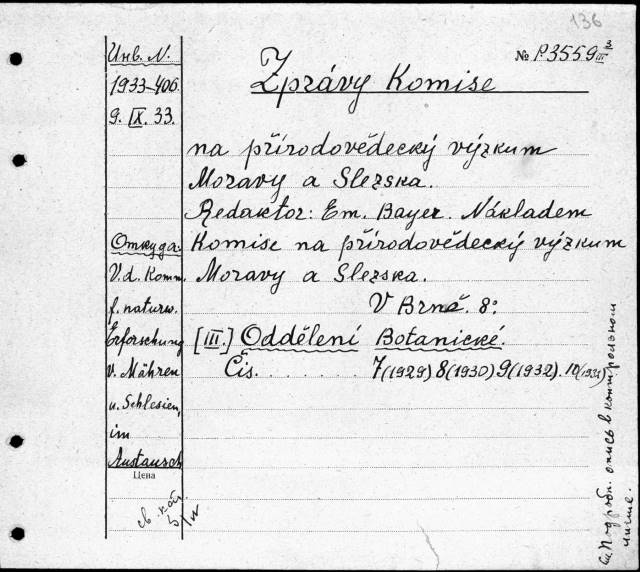 136
Инв. N.
1933-406
9. IX. 33.
№ P.3559 III 3
Zprávy Komise
na přírodovědecký výzkum
Moravy a Slezska.
Redaktor: Em. Bayer. Nákladem
Komise na přírodovědecký výzkum
Moravy a Slezska.
V Brně. 8º
[III.] Oddělení Botanické.
Čis. . . . . . 7(1929) 8(1930) 9(1932). 10(1934)
Откуда:
V. d. Komm.
f. naturw.
Erforschung
v. Mähren
u. Schlesien,
im
Austausch
Цена
св
См. Подробн. опись в контрольном
листе.